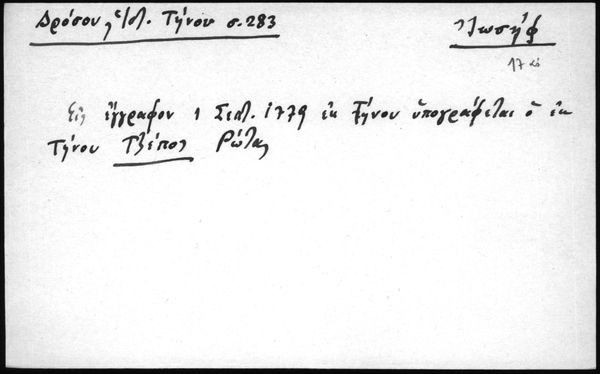 Δρόσου, Ἱστ. Τήνου σ. 283
Ἰωσήφ
17
Εἰς ἔγγραφον 1 Σεπτ. 1779 ἐκ Τήνου ὑπογράφεται ὁ ἐκ
Τήνου Τζέπος Ρώτας